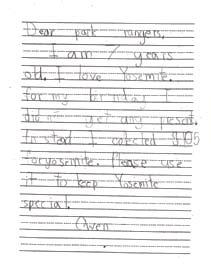 Dear park rangers,
I am 7 years
old. I love Yosemite.
for my birthday I
did not get any present.
Instead I colected $105
foryosemite. Please use
it to keep Yosemite
special.
Owen